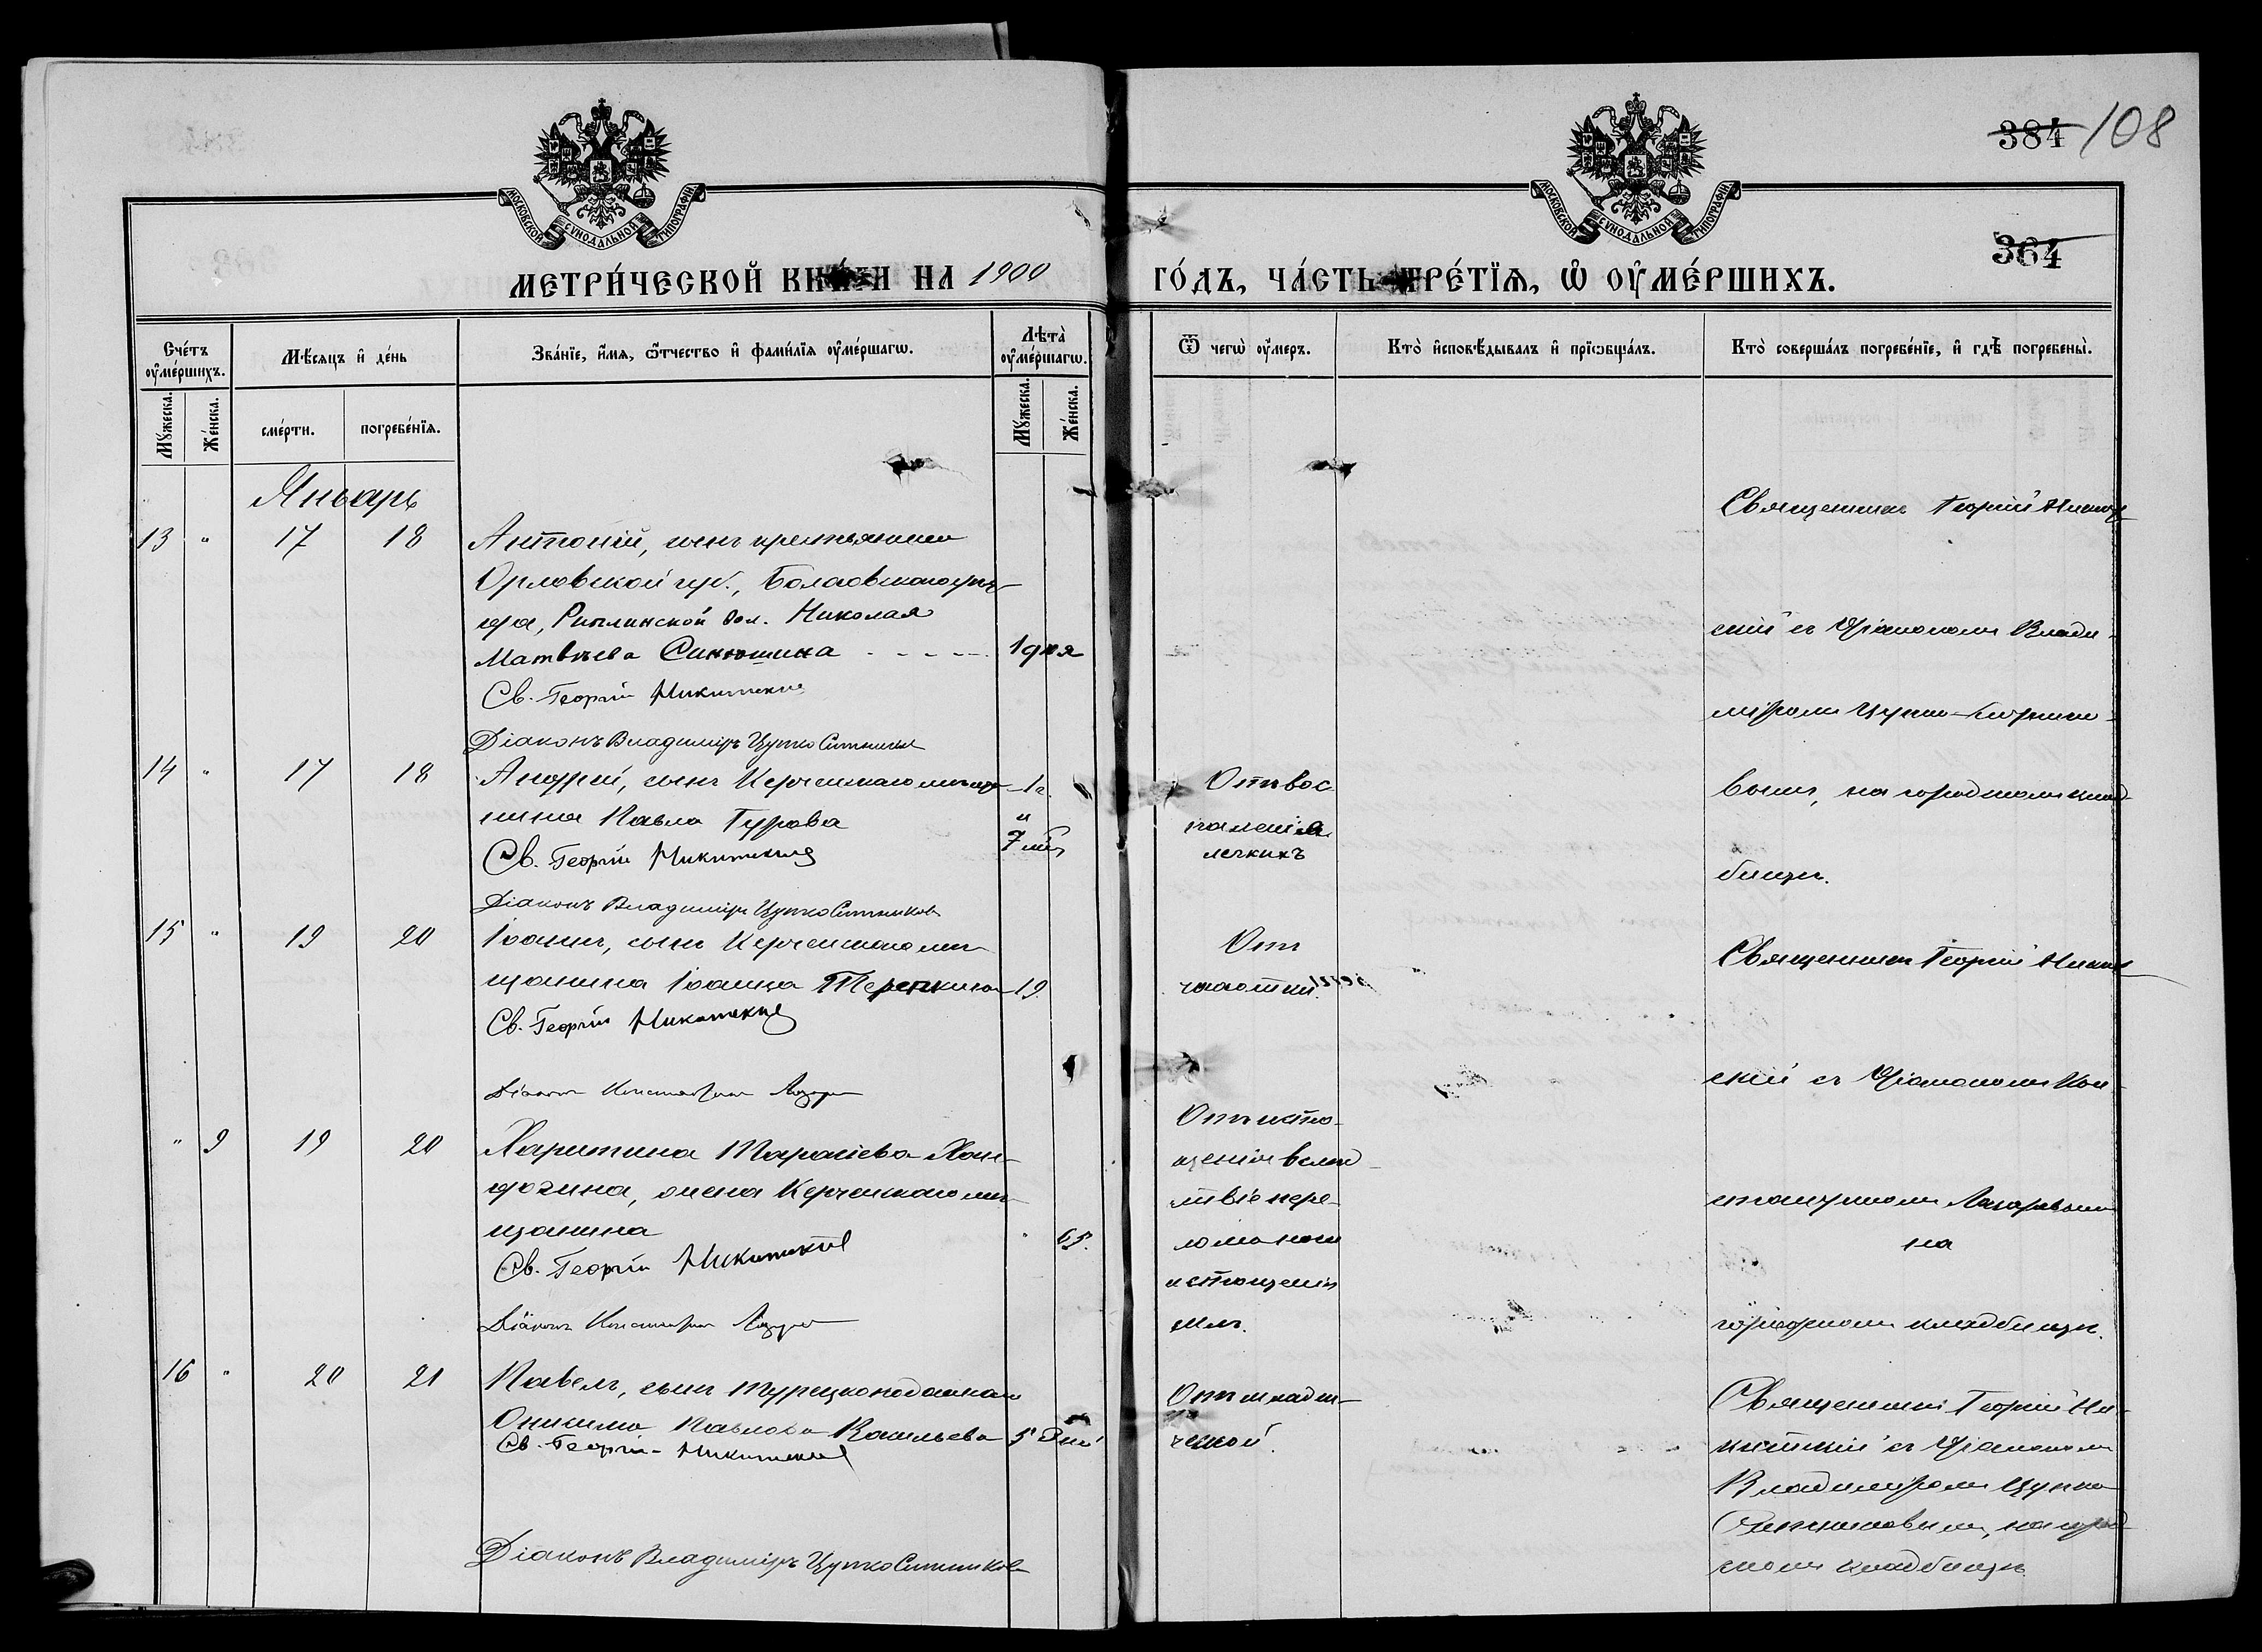 384 108
364
МОСКОВСКОЙ СѴНОДАЛЬНОЙ ТИПОГРАФІИ
МОСКОВСКОЙ СѴНОДАЛЬНОЙ ТИПОГРАФІИ
МЕТРИ́ЧЕСКОЙ КНИ́ГИ НА 1900 ГО́ДЪ, ЧА́СТЬ ТРЕ́ТЇѦ, Ѡ҆ ОУ҆МЕ́РШИХЪ.
Сче́тъ оу҆ме́ршихъ.
Мѣ́сяцъ и҆ де́нь
Зва́нїе, и҆́мя, ѻ҆́тчество и҆ фами́лїя оу҆ме́ршагѡ.
Лѣта̀ оу҆ме́ршагѡ.
Ѿ чегѡ̀ оу҆́меръ.
Кто̀ и҆сповѣ́дывалъ и҆ прїѡбща́лъ.
Кто̀ соверша́лъ погребе́нїе, и҆ гдѣ̀ погребены̀.
Мꙋ́жеска.
Же́нска.
сме́рти.
погребе́нїя.
Мꙋ́жеска.
Же́нска.
Январь
13 " 17 18
Антоній, сынъ крестьянина
Орловской губ., Болховскаго уѣз-
да, вол. Николая
Матвѣева Синюшина - - - - 1 дня
Св. Георгій Никитскій
Діаконъ Владиміръ Цупко Ситниковъ
Священникъ Георгій Никит
скій съ Діакономъ Влади-
міромъ Цупко-
вымъ, на городскомъ клад-
бищѣ.
14 " 17 18
Андрей, сынъ Керченскаго мѣща-
нина Павла Гурова
1 г.
и
7 мѣс
Св. Георгій Никитскій
Діаконъ Владиміръ Цупко Ситниковъ
Отъ вос
паленія
легкихъ
15 " 19 20
Іоаннъ, сынъ Керченскаго мѣ-
щанина Іоанна 19.
Св. Георгій Никитскій
Діаконъ Константинъ Лазаревъ
Отъ
чахотки.
Священникъ Георгій Никит
скій съ Діакономъ Кон-
стантиномъ Лазаревымъ
на
городскомъ кладбищѣ.
" 9 19 20
Харитина Тарасіева
жена Керченскаго мѣ-
щанина " 65.
Св. Георгій Никитскій
Діаконъ Константинъ Лазаревъ
Отъ исто-
щенія вслѣд-
ствіе пере-
лома ноги
истощенія
силъ.
16 " 20 21
Павелъ, сынъ турецкоподданнаго
Онисима Павлова Васильева 5 дней
Св. Георгій Никитскій
Діаконъ Владиміръ Цупко Ситниковъ
Отъ младен-
ческой.
Священникъ Георгій Ни-
китскій съ Діакономъ
Владиміромъ Цупко
Ситниковымъ, на город-
скомъ кладбищѣ.